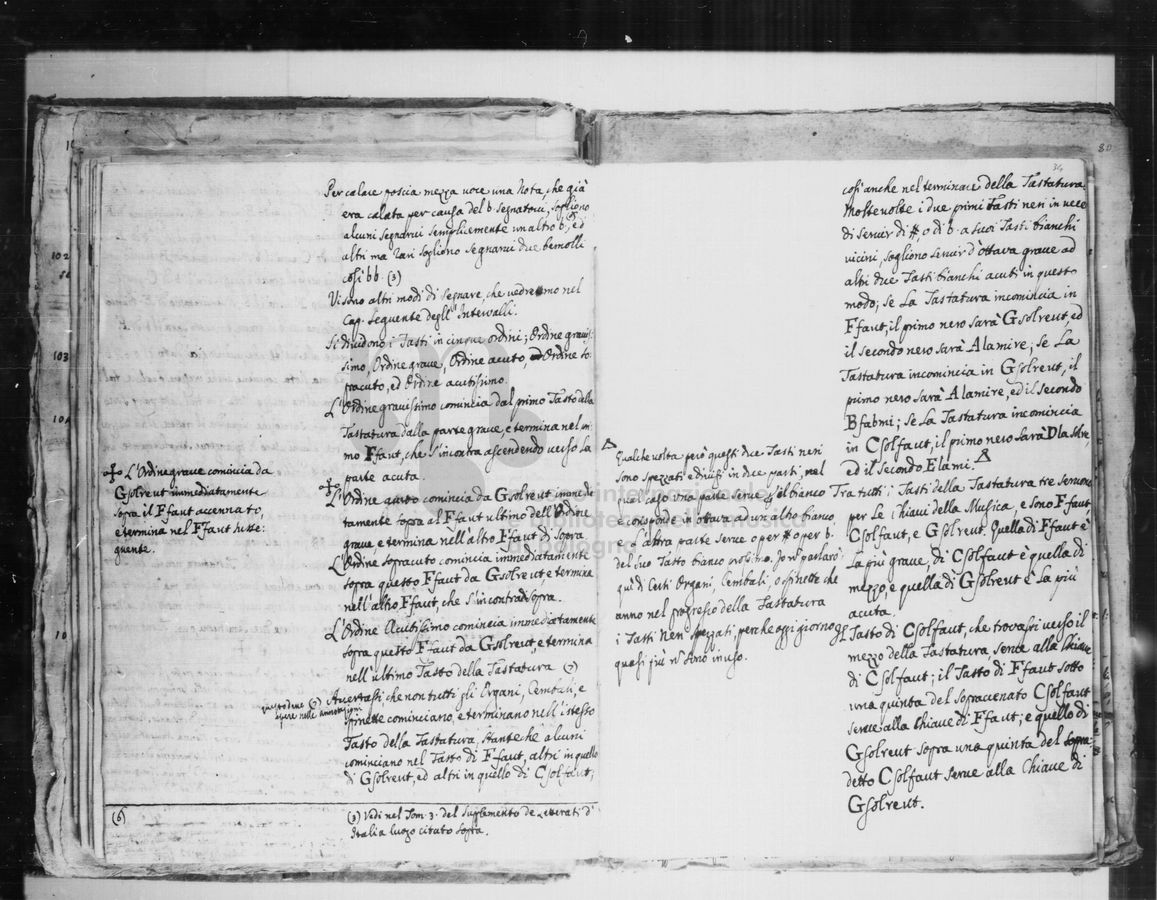 Per calare poscia mezza voce una Nota, che già
era calata per causa del b. segnatovi, sogliono
alcuni segnarvi semplicemente un altro b, ed
altri ma rari sogliono segnarvi due bemolli
così bb. (3)
Vi sono altri modi di segnare, che vedremo nel
Cap. seguente degl'Intervalli.
Si dividono i Tasti in cinque ordini; Ordine gravis-
simo, Ordine grave, Ordine acuto, Ordine so-
pracuto, ed Ordine acutissimo.
L'Ordine gravissimo comincia dal primo Tasto della
Tastatura dalla parte grave, e termina nel pri-
mo Ffaut, che s'incontra ascendendo verso la
parte acuta.
L'Ordine acuto comincia da Gsolreut immedia-
tamente sopra al Ffaut ultimo dell'Ordine
grave, e termina nell'altro Ffaut di sopra
L'Ordine sopracuto comincia immediatamente
sopra questo Ffaut da Gsolreut e termina
nell'altro Ffaut, che s'incontra sopra.
L'Ordine Acutissimo comincia immediatamente
sopra questo Ffaut da Gsolreut, e termina
nell'ultimo Tasto della Tastatura (7)
Avertasi, che non tutti gli Organi, Cembali, e
Spinette cominciano, e terminano nell'istesso
Tasto della Tastatura, stanteche alcuni
cominciano nel Tasto di Ffaut, altri in quello
di Gsolreut, ed altri in quello di Csolfaut;
L'Ordine grave comincia da
Gsolreut immediatamente
sopra il Ffaut accennato,
e termina nel Ffaut susse-
guente.
(7)
nelle annotazioni
(6)
(3) Vidi nel Tom. 3. del Supplemento de Letterati d'
Italia luogo citato sopra.
80
34
102
103
10
così anche nel terminare della Tastatura
Molte volte i due primi Tasti neri in vece
di servir di #, o di b. a suoi Tasti bianchi
vicini, sogliono servir d'ottava grave ad
altri due Tasti bianchi acuti in questo
modo; se la Tastatura incomincia in
Ffaut, il primo nero sarà Gsolreut, ed
il secondo nero sarà Alamire; se la
Tastatura incomincia in Gsolreut, il
primo nero sarà Alamire, ed il secondo
Bfabmi; se la Tastatura incomincia
in Csolfaut, il primo nero sarà Dlasolre
ed il secondo Elami.
Qualche volta però questi due Tasti neri
sono spezzati e divisi in due parti, nel
qual caso una parte serve bianco
e corisponde in ottava ad un altro bianco
e l'altra parte serve o per # o per b.
del suo Tasto bianco Io parlarò
quì di Certi Organi, Cembali, o spinette che
anno nel progresso della Tastatura
i Tasti Neri spezzati, perche oggi giorno
quasi più sono in uso.
Tra tutti i Tasti della Tastatura tre servono
per le chiavi della Musica, e sono Ffaut
Csolfaut, e Gsolreut. Quella di Ffaut è
la più grave, di Csolfaut è quella di
mezzo e quella di Gsolreut è la più
acuta.
Il Tasto di Csolfaut, che trovasi verso il
mezzo della Tastatura, serve alla Chiave
di Csolfaut; il Tasto di Ffaut sotto
una quinta del sopracenato Csolfaut
serve alla Chiave di Ffaut; e quello di
Gsolreut sopra una quinta del sopra-
detto Csolfaut serve alla Chiave di
Gsolreut.
museo internazionale
e biblioteca della musica
di bologna